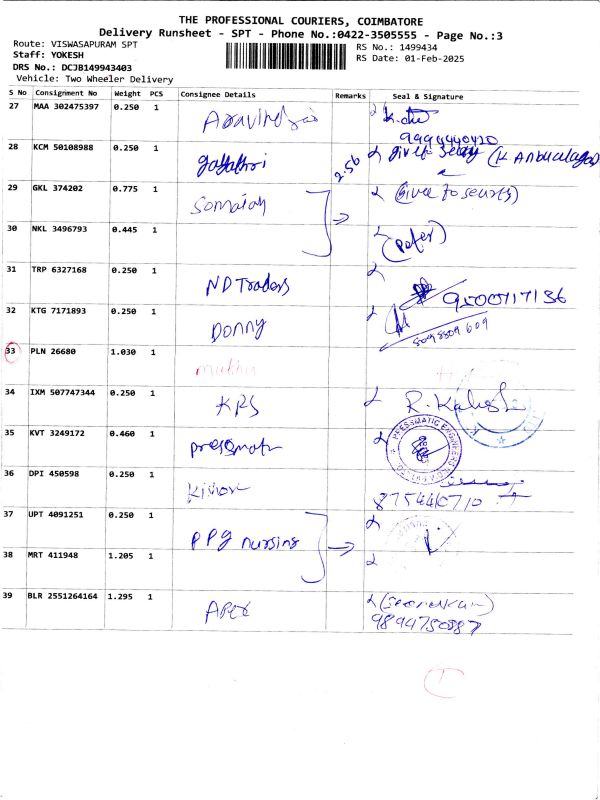 THE PROFESSIONAL COURIERS, COIMBATORE
Delivery Runsheet - SPT - Phone No.:0422-3505555 - Page No.:3
Route: VISWASAPURAM SPT
RS No.: 1499434
Staff: YOKESH
RS Date: 01-Feb-2025
DRS No.: DCJB149943403
Vehicle: Two Wheeler Delivery
S No Consignment No Weight PCS Consignee Details Remarks Seal & Signature
27 MAA 302475397 0.250 1
28 KCM 50108988 0.250 1 gayathri 2.56
29 GKL 374202 0.775 1 Somaiah
30 NKL 3496793 0.445 1
31 TRP 6327168 0.250 1 ND Traders 9500717136
32 KTG 7171893 0.250 1 Donny
33 PLN 26680 1.030 1
34 IXM 507747344 0.250 1 KRS
35 KVT 3249172 0.460 1 PRESSMATIC ENGINEERS
36 DPI 450598 0.250 1
37 UPT 4091251 0.250 1 PPG nursing
38 MRT 411948 1.205 1
39 BLR 2551264164 1.295 1 Apex
9894750087